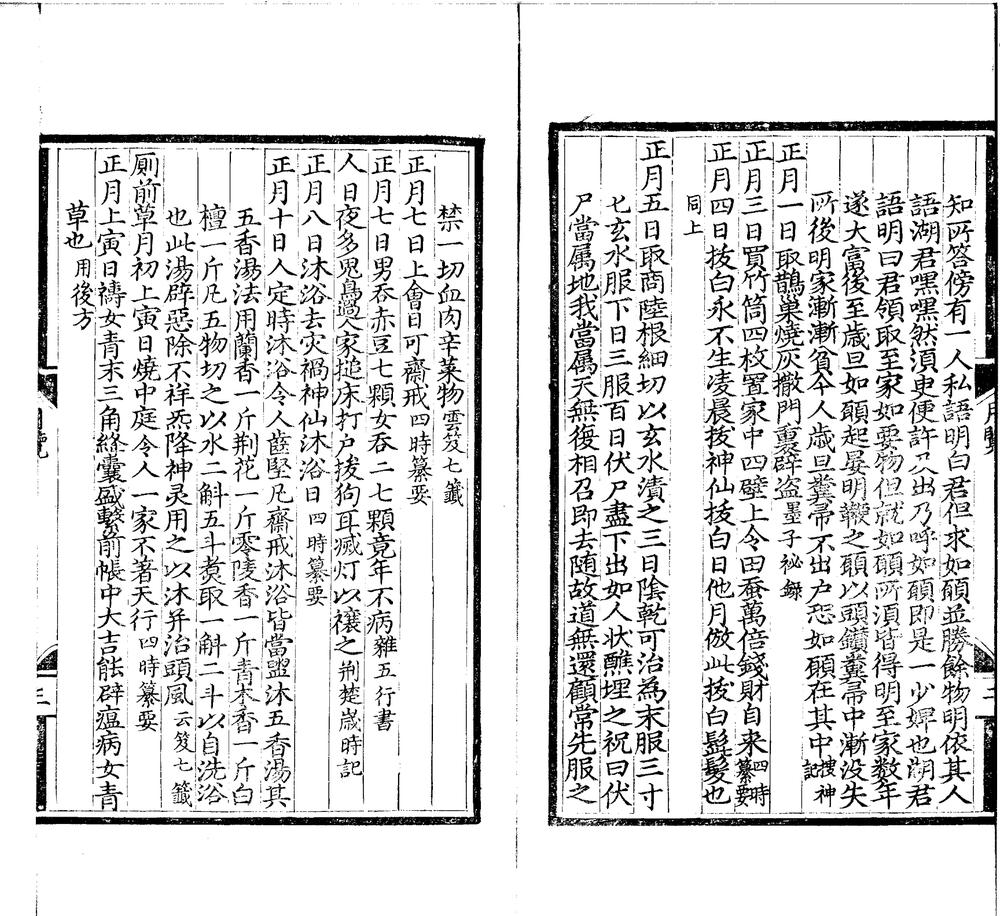 知所答傍有一人私語明白君但求如願並勝餘物明依其人
語湖君嘿嘿然湏吏便許及出乃呼如願即是一少婢也湖君
語明曰君領取至家如要物但就如願所湏皆得明至家数年
遂大富後至歲旦如願起晏明鞭之願以頭鑚糞帚中漸没失
所後明家漸漸貧今人歳旦糞帚不出户恐如願在其中搜神記
正月一日取鵲巢燒灰撒門裏辟盗墨子祕録
正月三日買竹筒四枚置家中四壁上令田蚕萬倍錢財自来四時纂要
正月四日拔白永不生凌晨拔神仙拔白日他月倣此拔白髭髮也
同上
正月五日取商陸根細切以玄水漬之三日陰乾可治為末服三寸
匕玄水服下日三服百日伏尸盡下出如人状醮埋之祝曰伏
尸當属地我當属天無復相召即去随故道無還顧常先服之
禁一切血肉辛菜物雲笈七籤
正月七日上會日可齋戒四時纂要
正月七日男吞赤豆七顆女吞二七顆竟年不病雜五行書
人日夜多鬼鳥過人家搥床打户拔狗耳滅灯以禳之荆楚歳時記
正月八日沐浴去灾禍神仙沐浴日四時纂要
正月十日人定時沐浴令人齒堅凡齋戒沐浴皆當盥沐五香湯其
五香湯法用蘭香一斤荆花一斤零陵香一斤青木香一斤白
檀一斤凡五物切之以水二斛五斗煑取一斛二斗以自洗浴
也此湯辟惡除不祥炁降神灵用之以沐并治頭風云笈七籤
厠前草月初上寅日燒中庭令人一家不著天行四時纂要
正月上寅日擣女青末三角縫囊盛繫前帳中大吉能辟瘟病女青
草也用後方